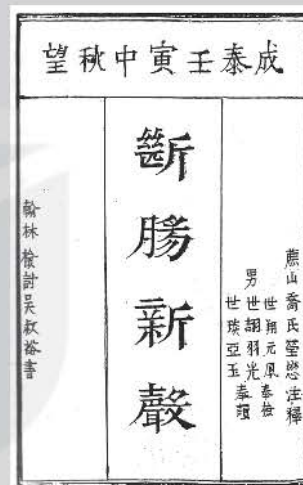 成泰壬寅中秋望
蔗山喬氏瑩懋注釋
世翔元鳳奉檢
男世詡羽光
世璞亞玉奉讀
斷膓新聲
翰林檢討吳叔裕書